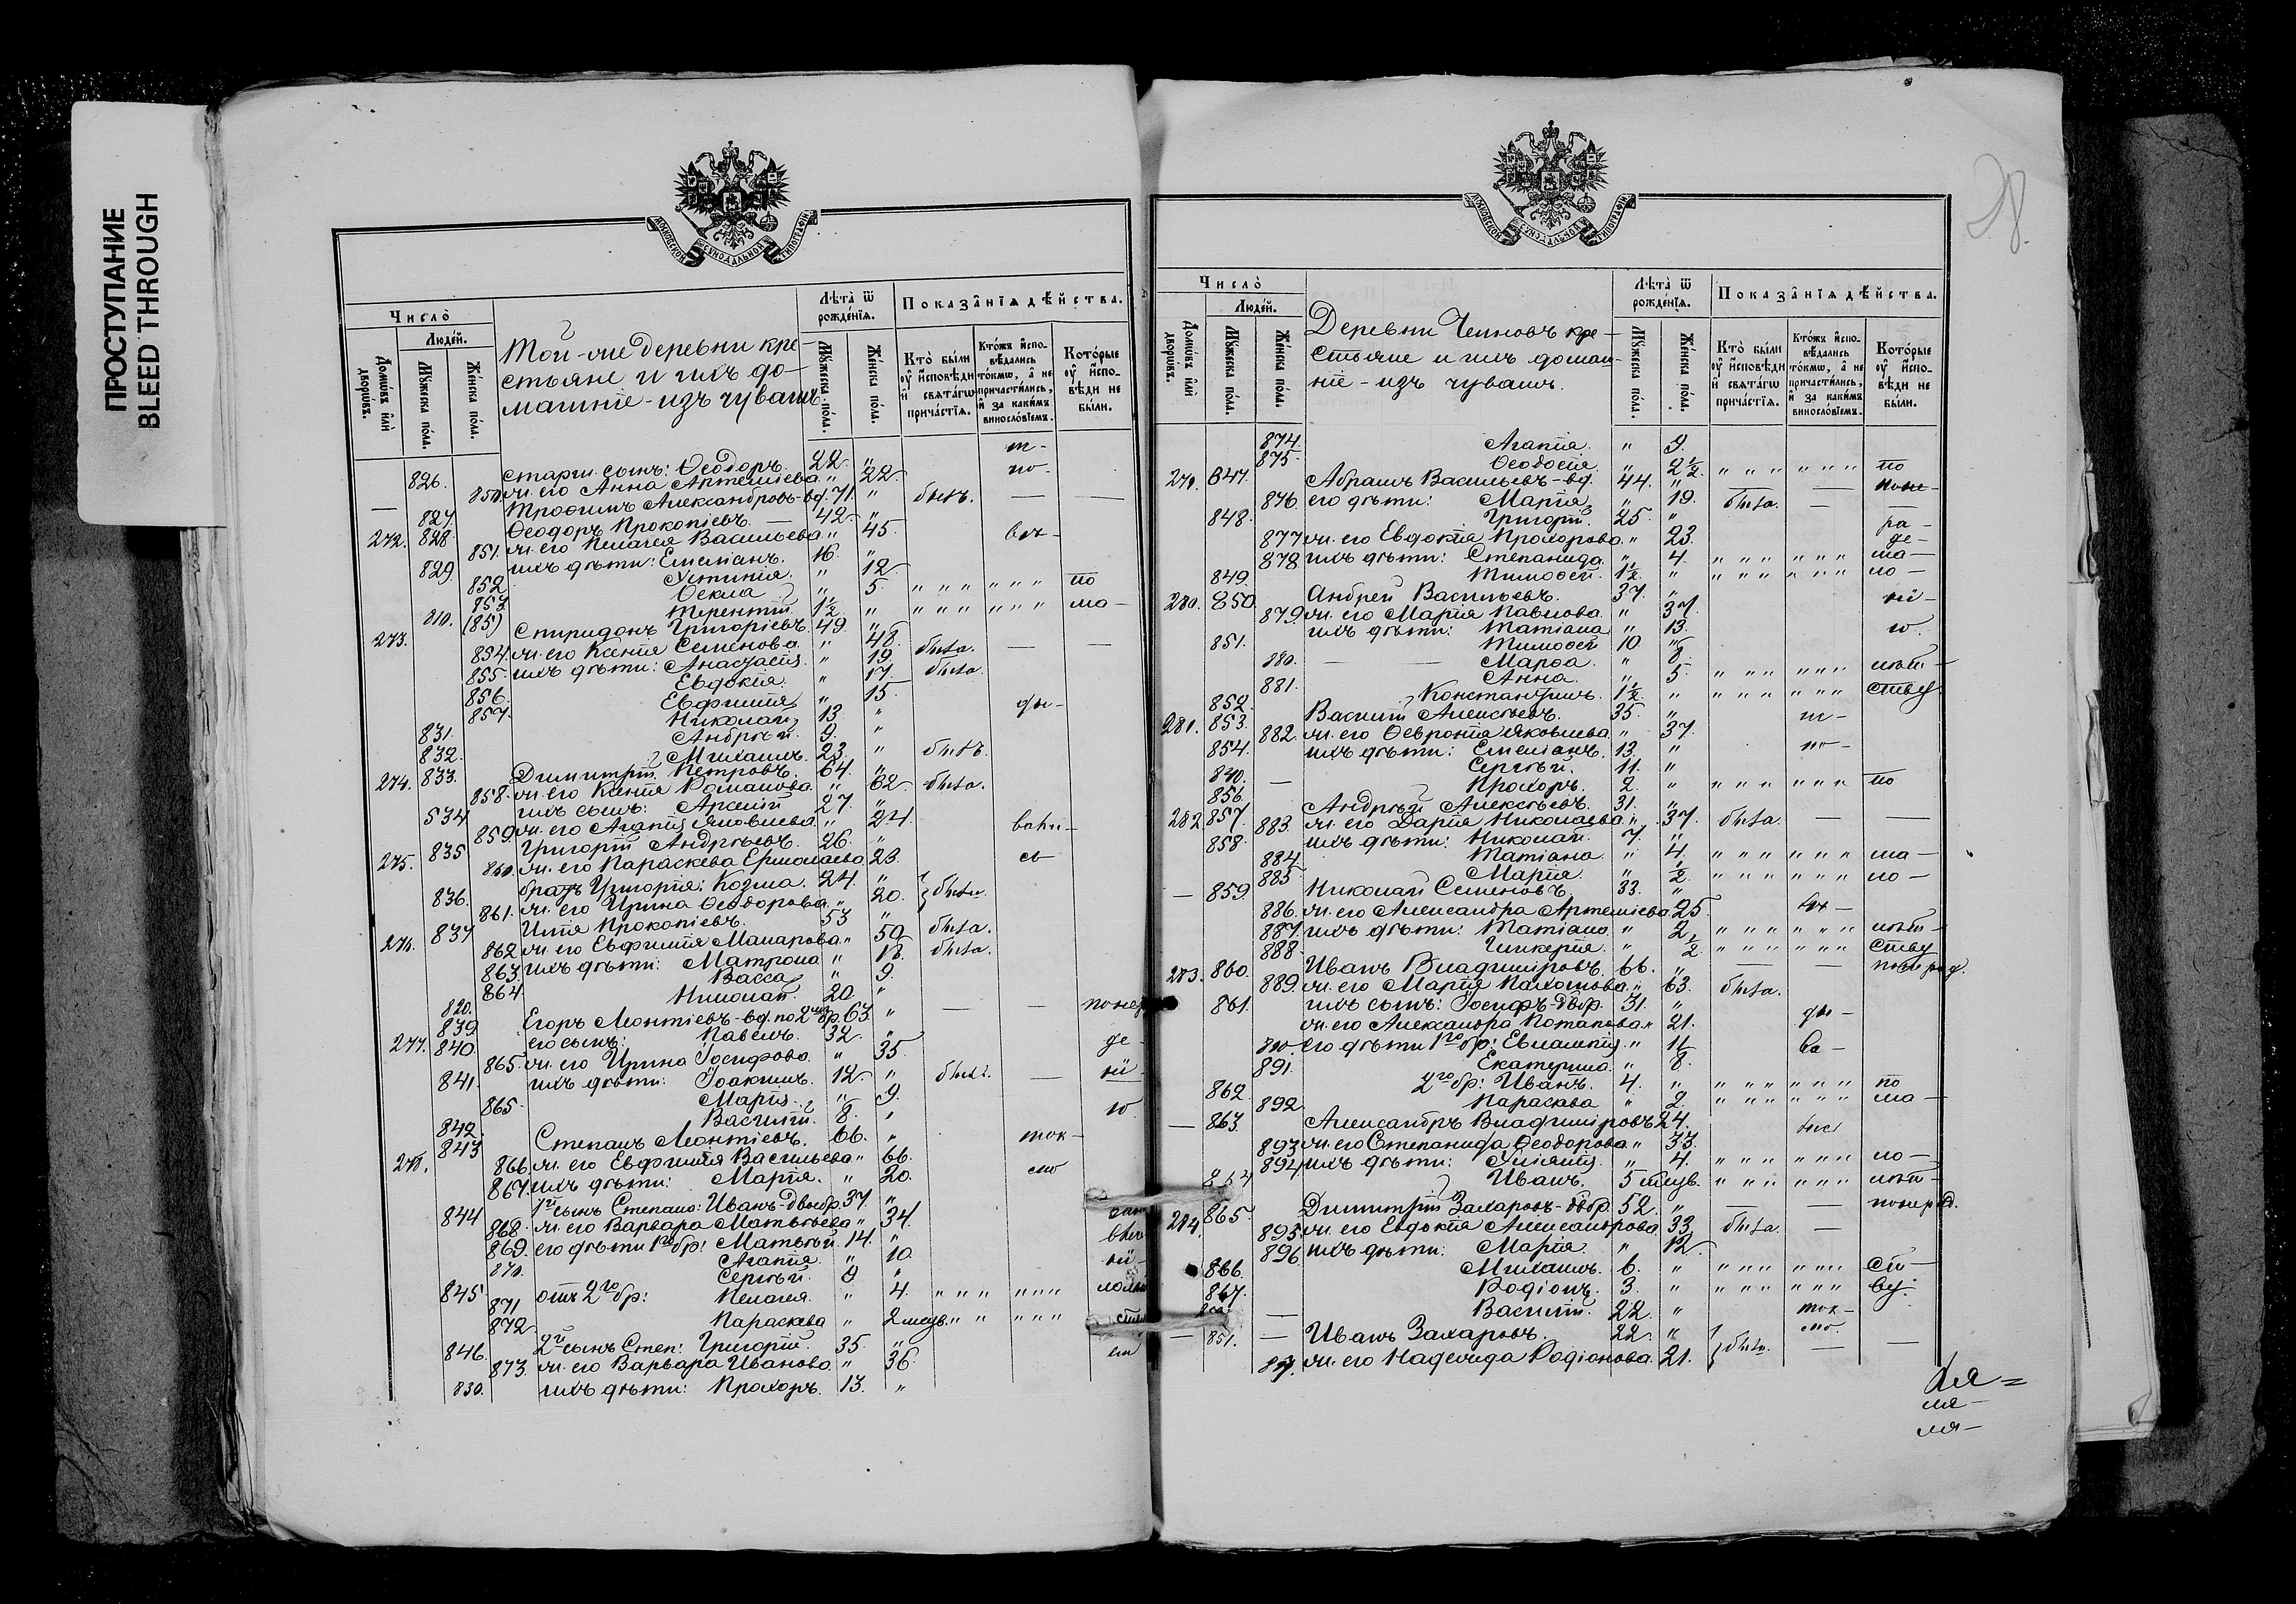 ПРОСТУПАНИЕ
BLEED THROUGH
МОСКОВСКОЙ СѴНОДАЛЬНОЙ ТИПОГРАФІИ
Число̀
Людей.
Домѡвъ или дворѡвъ.
Мꙋжеска пола.
Женска пола.
Той-же деревни кре-
стьяне и ихъ до-
машніе - изъ чувашъ
Лѣта ѿ рожденїѧ.
Мꙋжеска пола.
Женска пола.
Показанїѧ дѣйства.
Кто были оу исповѣди и свѧтагѡ причастїѧ.
Ктожъ исповѣдались токмѡ, а не причастились, и за какимъ винословїемъ.
Которые оу исповѣди не были.
826. старш. сынъ: Ѳеодоръ. 22 "
850 ж. его Анна Артемьева " 22.
Трофимъ Александровъ-вд. 71. " бытъ. — —
272. 828 Ѳеодоръ Прокопіевъ. 42 "
851. ж. его Пелагея Васильева " 45.
829 ихъ дѣти: Емеліанъ. 16. "
852 Устинія. " 12.
853 Ѳекла " 5. " " " " " " по
Терентій 1½ " " " " " " " ма-
273. Спиридонъ Григорьевъ 49. "
854. ж. его Ксенія Семенова. " 48. быва. — —
855. ихъ дѣти: Анастасія. " 19 быва.
856. Евдокія. " 17.
857. Евфимія " 15.
831. Николай 13. "
832. Андрей. 9. "
833. Михаилъ. 23 " бытъ
274. Димитрій Петровъ. 64. "
858. ж. его Ксенія Романова " 62 быва.
534 ихъ сынъ: Арсеній 27 "
859. ж. его Агапія Яковлева. " 24.
275. 835 Григорій Андреевъ. 26. "
860. ж. его Параскева Ермолаева 23.
836. братъ Григорія: Козма. 24. "
861. ж. его Ирина Ѳеодорова. " 20.
276. 837 Илія Прокопіевъ. 53 "
862 ж. его Евфимія Макарова " 50 быва.
863 ихъ дѣти: Матрона " 18. быва.
864 Васса " 9.
Николай. 20 "
839. Егоръ Леонтіевъ-вд. по 2 бр. 63. " — —
277. 840. его сынъ: Павелъ. 32. "
865. ж. его Ирина Іосифова. " 35.
841. ихъ дѣти: Іоакимъ. 12. "
865. Марія. " 9.
842. Василій. 8. "
278. 843 Степанъ Леонтіевъ. 66. " ток-
866. ж. его Евфимія Васильева " 66. мо
867. ихъ дѣти: Марія. " 20.
844 1й сынъ Степана: Иванъ-двоебр. 37. "
868. ж. его Варвара Матвѣева " 34.
869. его дѣти 1го бр: Матвѣй. 14. "
870. Агапія. " 10.
Сергѣй. 9 "
845 отъ 2го бр: 871 Пелагея. " 4. " " " " " "
872 Параскева " 2 мсцв. " " " " "
846. 2й сынъ Степ: Григорій. 35. "
873. ж. его Варвара Иванова " 36.
830. ихъ дѣти: Прохоръ. 13. "
28.
МОСКОВСКОЙ СѴНОДАЛЬНОЙ ТИПОГРАФІИ
Число̀
Людей.
Домѡвъ или дворѡвъ.
Мꙋжеска пола.
Женска пола.
Деревни кре-
стьяне и ихъ домаш-
ніе - изъ чувашъ.
Лѣта ѿ рожденїѧ.
Мꙋжеска пола.
Женска пола.
Показанїѧ дѣйства.
Кто были оу исповѣди и свѧтагѡ причастїѧ.
Ктожъ исповѣдались токмѡ, а не причастились, и за какимъ винословїемъ.
Которые оу исповѣди не были.
874. Агапія. " 9.
875. Ѳеодосія. " 2½ " " " " " " по
847. Абрамъ Васильевъ-вд. 44. " — —
876. его дѣти: Марія " 19. быва. — —
848. Григорій. 25. "
877 ж. его Евдокія Прохорова. " 23.
878 ихъ дѣти: Степанида. " 4. " " " " " " ма-
849. Тимоѳей. 1½ " " " " " " " ло-
280. 850. Андрей Васильевъ. 37. "
879. ж. его Марія Павлова " 37.
ихъ дѣти: Татіана " 13.
851. Тимоѳей 10. "
880. Марѳа. " 8.
881. Анна. " 5. " " " " " " лѣт-
852. Константинъ. 1½ " " " " " " " ству
281. 853. Василій Алексѣевъ. 35. "
882. ж. его Февронія Яковлева. " 37.
854. ихъ дѣти: Емеліанъ. 13. "
Сергѣй. 11. "
856. Прохоръ. 2. " " " " " " " по
282 857. Андрей Алексѣевъ. 31. "
883. ж. его Дарія Николаева " 37. быва. — —
858. ихъ дѣти: Николай. 7. "
884. Татіана. " 4. " " " " " " ма-
885. Марія. " ½ " " " " " " ло-
— 859. Николай Семеновъ. 33. "
886. ж. его Александра Артемьева 25.
887. ихъ дѣти: Татіана " 2. " " " " " " лѣт-
888. Гликерія. " ½ " " " " " " ству
283. 860. Иванъ Владиміровъ. 66. " — —
889. ж. его Марія Пахомова. " 63. быва.
861. ихъ сынъ: Іосифъ-двбр. 31. "
ж. его Александра Потапова " 21.
890. его дѣти 1го бр: Евлампія. " 11
891. Екатерина. " 8.
862. 2го бр: Иванъ. 4. " " " " " " " по
892 Параскева " 2. " " " " " " ма-
— 863. Александръ Владиміровъ 24.
893 ж. его Степанида Ѳеодорова. " 33.
894 ихъ дѣти: Уліянія. " 4. " " " " " " ло-
Иванъ. 5 мсцв. " " " " " " лѣт-
284. 865. Димитрій Захаровъ-двбр. 52. " — —
895. ж. его Евдокія Александрова. 33. быва. —
896. ихъ дѣти: Марія. " 12.
866. Михаилъ. 6. " " " " " " " ст-
867. Родіонъ. 3. " " " " " " " ву.
Василій. 22. " ток-
— 851. — Иванъ Захаровъ. 22. " мо.
ж. его Надежда Родіонова. 21. быва. — —